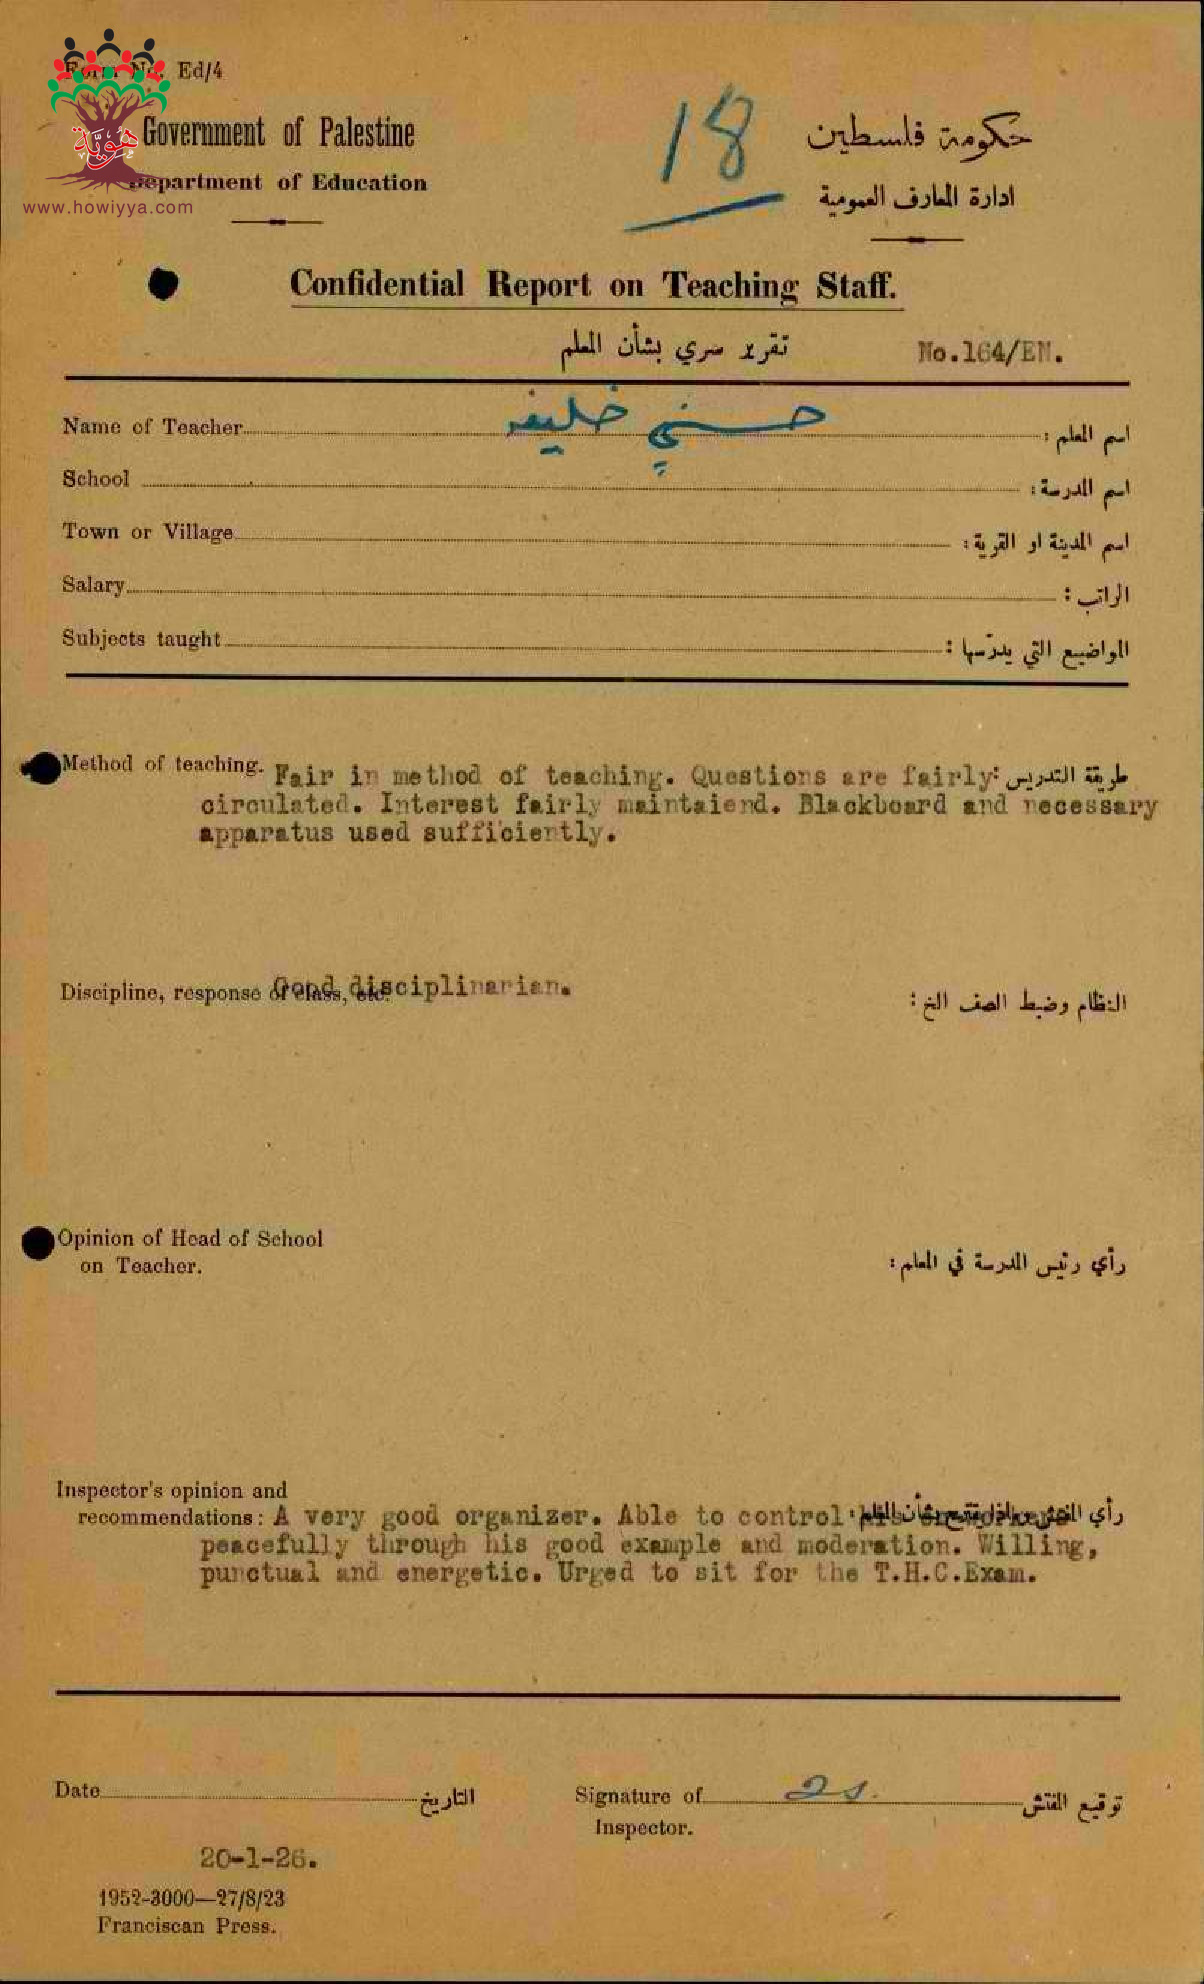 Form No. Ed/4
هُوِيَّة
www.howiyya.com
Government of Palestine
Department of Education
18
حكومة فلسطين
ادارة المعارف العمومية
Confidential Report on Teaching Staff.
تقرير سري بشأن المعلم
No.164/EN.
Name of Teacher حسني خليفه اسم المعلم :
School اسم المدرسة :
Town or Village اسم المدينة او القرية :
Salary الراتب :
Subjects taught المواضيع التي يدرّسها :
Method of teaching. Fair in method of teaching. Questions are fairly طريقة التدريس :
circulated. Interest fairly maintaiend. Blackboard and necessary
apparatus used sufficiently.
Discipline, response of class, etc. Good disciplinarian. النظام وضبط الصف الخ :
Opinion of Head of School
on Teacher.
رأي رئيس المدرسة في المعلم :
Inspector's opinion and
recommendations : A very good organizer. Able to control his رأي المفتش وماذا يقترح بشأن المعلم :
peacefully through his good example and moderation. Willing,
punctual and energetic. Urged to sit for the T.H.C.Exam.
Date التاريخ
Signature of توقيع المفتش
Inspector.
20-1-26.
1952-3000—27/8/23
Franciscan Press.